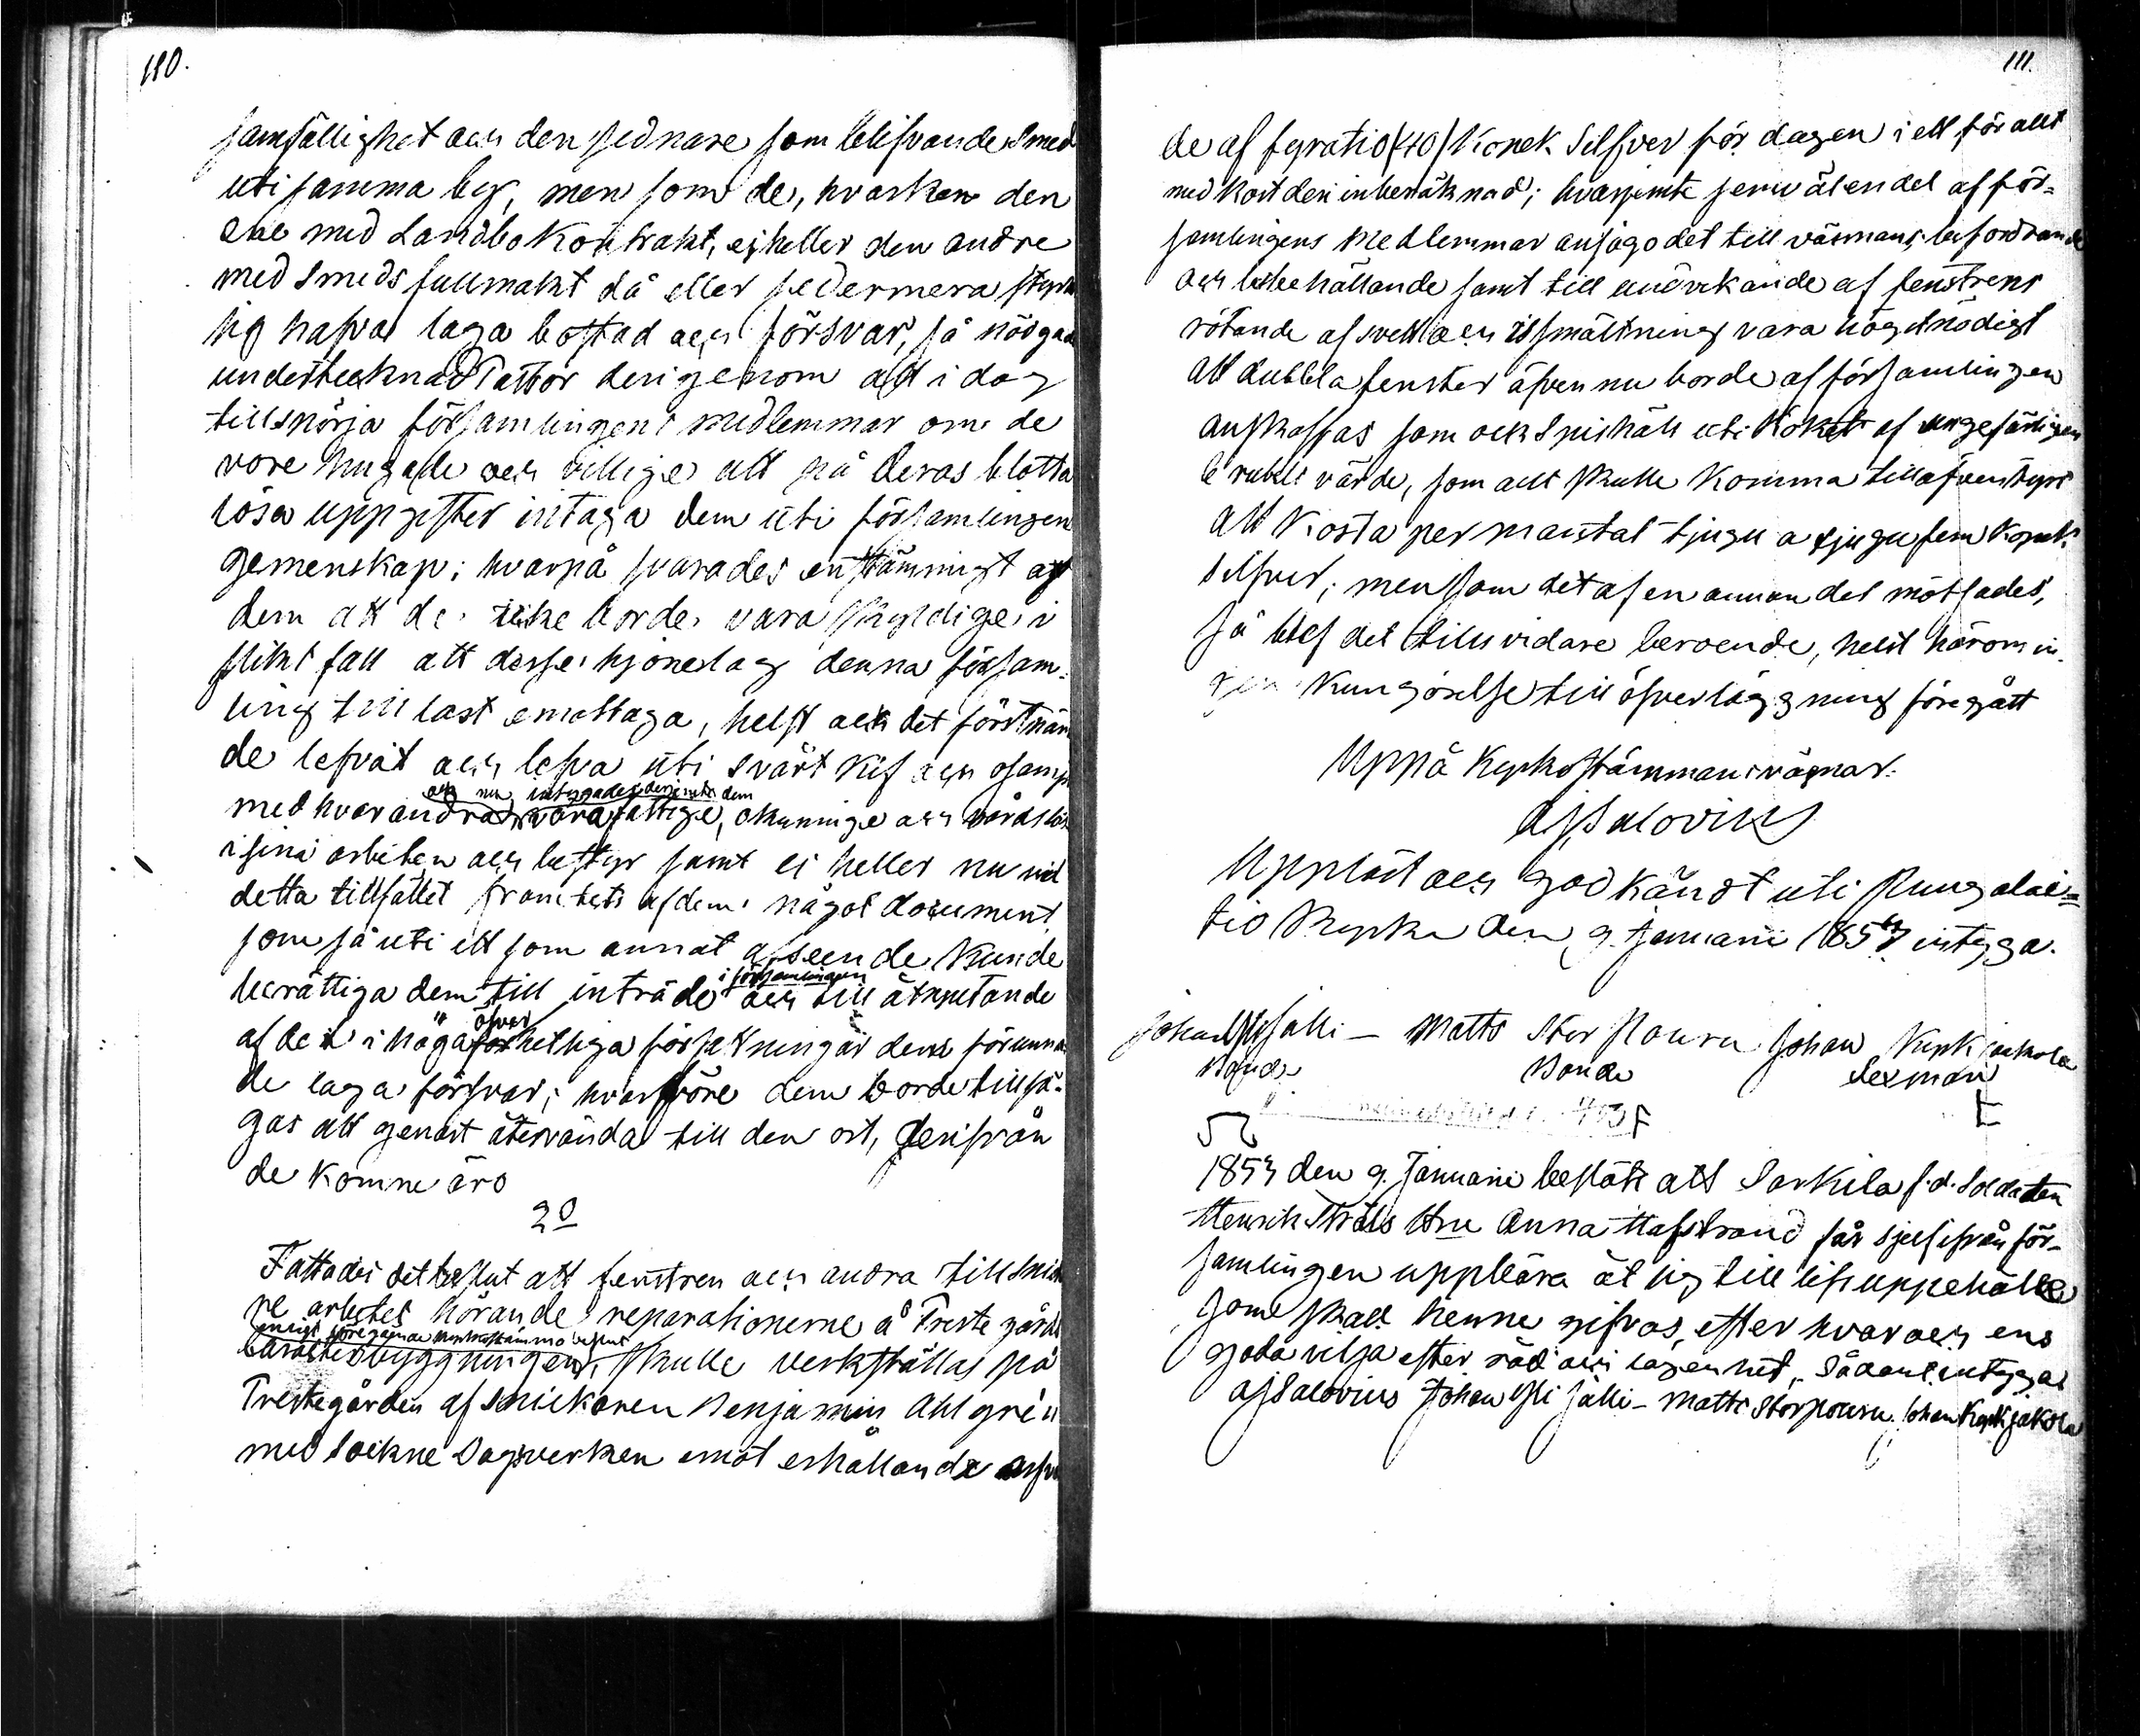 110.
samfällighet och den sednare som blifvande Smed
uti samma by, men som de, hvarken den
ene med Landbo Kontrakt, ej heller den andre
med Smeds fullmakt då eller sedermera styrkt
sig hafva laga bostad och försvar, så nödgad
undertecknad Pastor derigenom att i dag
tillspörja församlingens medlemmar om de
vore hugade och villige att på deras blotta
lösa uppgifter intaga dem uti församlingens
gemenskap; hvarpå svarades enstämmigt af
dem att de icke borde vara skyldige i
slikt fall att desse hjonelag denna försam-
ling till last emottaga, helst och det förstnäm
de lefvat och lefva uti svårt kif och osamja
och nu intygades dessemte dem
med hvarandra vara fattige, okunnige och vårdslös
i sina arbeten och bestyr samt ei heller nu vid
detta tillfället framtets af dem något document,
som så uti ett som annat afseende kunde
i församlingen
berättiga dem till inträde och till åtnjutande
öfver
af det i höga förhetliga författningar dem förunna
de laga försvar; hvarföre dem borde tillsä-
gas att genast återvända till den ort, derifrån
de komne äro
2o
Fattades det beslut att fenstren och andra till snicka
re arbetet hörande reparationerne å Preste gårds
enligt föregående Kyrkostämmo beslut
karaktersbyggningen, skulle verkställas på
Prestegården af Snickaren Benjamin Ahlgrén
med Sockne Dagsverken emot erhållande
111.
de af fyratio (40) Kopek Silfver för dagen i ett för allt
med kosten inberäknad; hvarjemte en del af för-
samlingens medlemmar ansågo det till värmans befordrande
och bibehållande samt till undvikande af fenstrens
rötande af svett och issmältning vara högst nödigt
att dubbla fenster äfven nu borde af församlingen
anskaffas som ock Spishäll uti Köket af ungefärligen
6 rubls värde, som allt skulle komma till äfventyrs
att kosta per mantal tjugu a tjugufem Kopek
silfver; men som det af en annan del mötsades,
så blef det tills vidare beroende, helst härom in-
gen Kungörelse till öfverläggning föregått
Uppå Kyrkostämmans vägnar:
AJSalovius
Uppläst och godkändt uti Pungalai-
tio Kyrka den 9. Januarii 1857 intyga.
Johan Ylijälli – Matts Stor Pouru Johan Kyrk jaakola
Bonde Bonde Sexman
1857 den 9. Januarii beslöts att Sarkila f.d. Soldaten
Henrik Stråls Hru Anna Hafstrand får sjelf ifrån för-
samlingen uppbära åt sig till lifs uppehälle
som skall henne gifvas, efter hvar och ens
goda vilja efter råd och lägenhet, Sådant intygga
AJSalovius Johan Yli jälli – Matts Storpouru. Johan Kyrkjakola